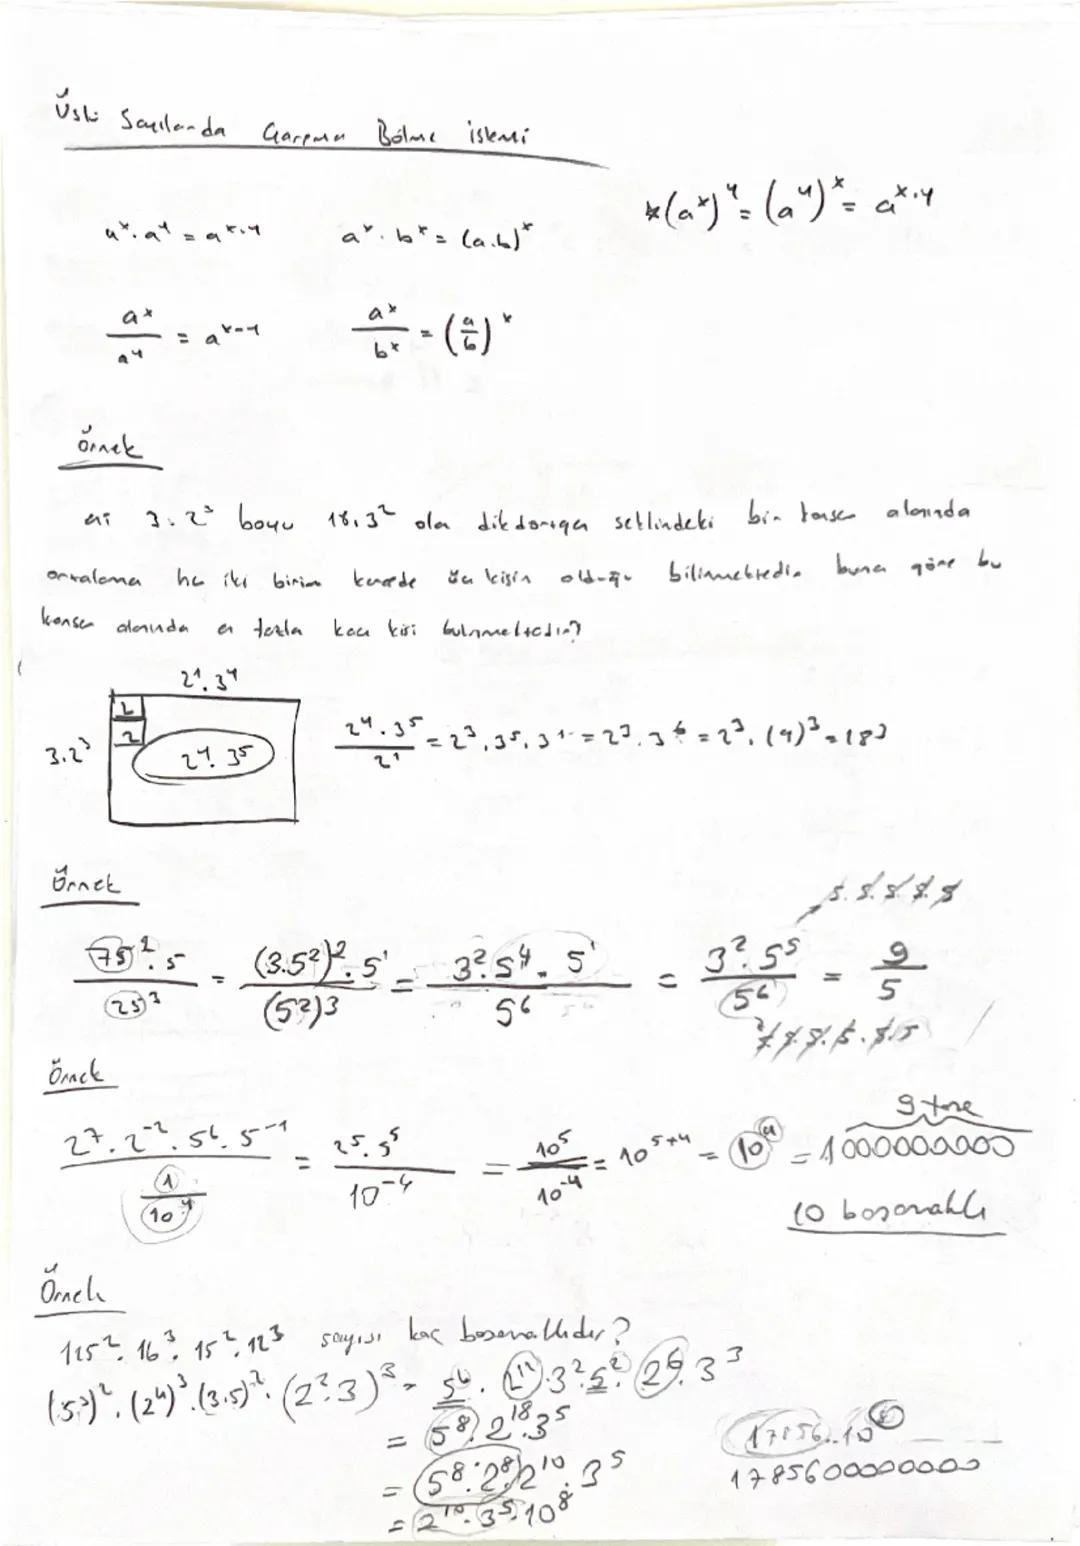 Üslü Sayılarda Çarpma Bölme işlemi
a^x . a^y = a^x.y    a^x . b^x = (a.b)^x    *(a^x)^y = (a^y)^x = a^x.y
a^x / a^y = a^x-y    a^x / b^x = (a/b)^x
Örnek
eni 3.2^3 boyu 18.3^2 olan dikdörtgen şeklindeki bir konser alanında
ortalama her iki birim karede üç kişin olduğu bilinmektedir buna göre bu
konser alanında en fazla kaç kişi bulunmaktadır?
2^1.3^4
3.2^3    2    2    2^4.3^5    2^4.3^5 / 2^1 = 2^3.3^5.3^1 = 2^3.3^6 = 2^3.(9)^3 = 18^3
Örnek
5.5.5.5.5
75^2.5 / 25^3 = (3.5^2)^2.5^1 / (5^2)^3 = 3^2.5^4.5^1 / 5^6 = 3^2.5^5 / 5^6 = 9/5
Örnek
9 tane
2^7.2^-2.5^6.5^-1 / 1/10^4 = 2^5.5^5 / 10^-4 = 10^5 / 10^-4 = 10^5+4 = 10^9 = 1000000000
10 basamaklı
Örnek
125^2.16^3.15^2.12^3 sayısı kaç basamaklıdır?
(5^3)^2.(2^4)^3.(3.5)^2.(2^2.3)^3 = 5^6.2^12.3^2.5^2.2^6.3^3
= 5^8.2^18.3^5
= 5^8.2^8.2^10.3^5
= 2^10.3^5.10^8
1785600000000